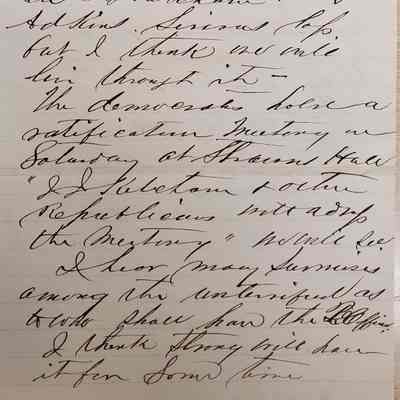 Adkins. Serious loss
but I think we will
live through it –
The democrats hold a
ratification Meeting on
Saturday at Hall
"J J & other
Republicans will address
the Meeting" we will see
I hear many surmises
among the unterrified as
to who shall have the P Office
I think Strong will have
it for some time